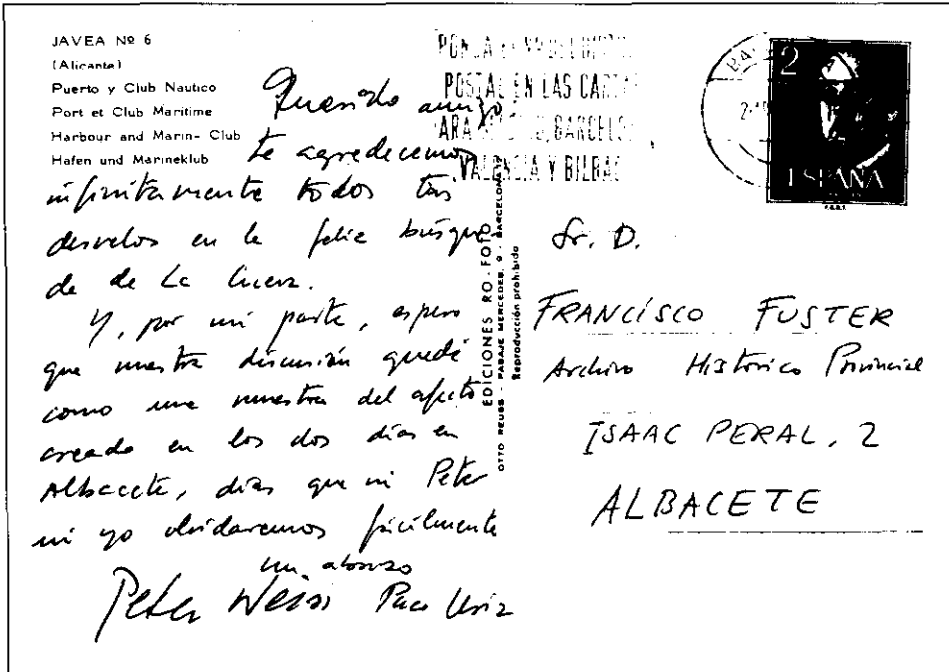 JAVEA Nº 6
(Alicante)
Puerto y Club Nautico
Port et Club Maritime
Harbour and Marin- Club
Hafen und Marineklub
Querido amigo:
te agradecemos
infinitamente todos tus
desvelos en la feliz búsque-
da de La Cueva.
Y, por mi parte, espero
que nuestra discusión quede
como una muestra del afecto
creado en los dos días en
Albacete, días que ni Peter
ni yo olvidaremos fácilmente
un abrazo
Peter Weiss Paco Uriz
EDICIONES RO-FOTO
OTTO REUSS - PASAJE MERCEDES, 9 - BARCELONA
Reproducción prohibida
POSTAL EN LAS CARTAS
BARCELO
VALENCIA Y BILBAO
2
ESPAÑA
Sr. D.
FRANCISCO FUSTER
Archivo Histórico Provincial
ISAAC PERAL, 2
ALBACETE